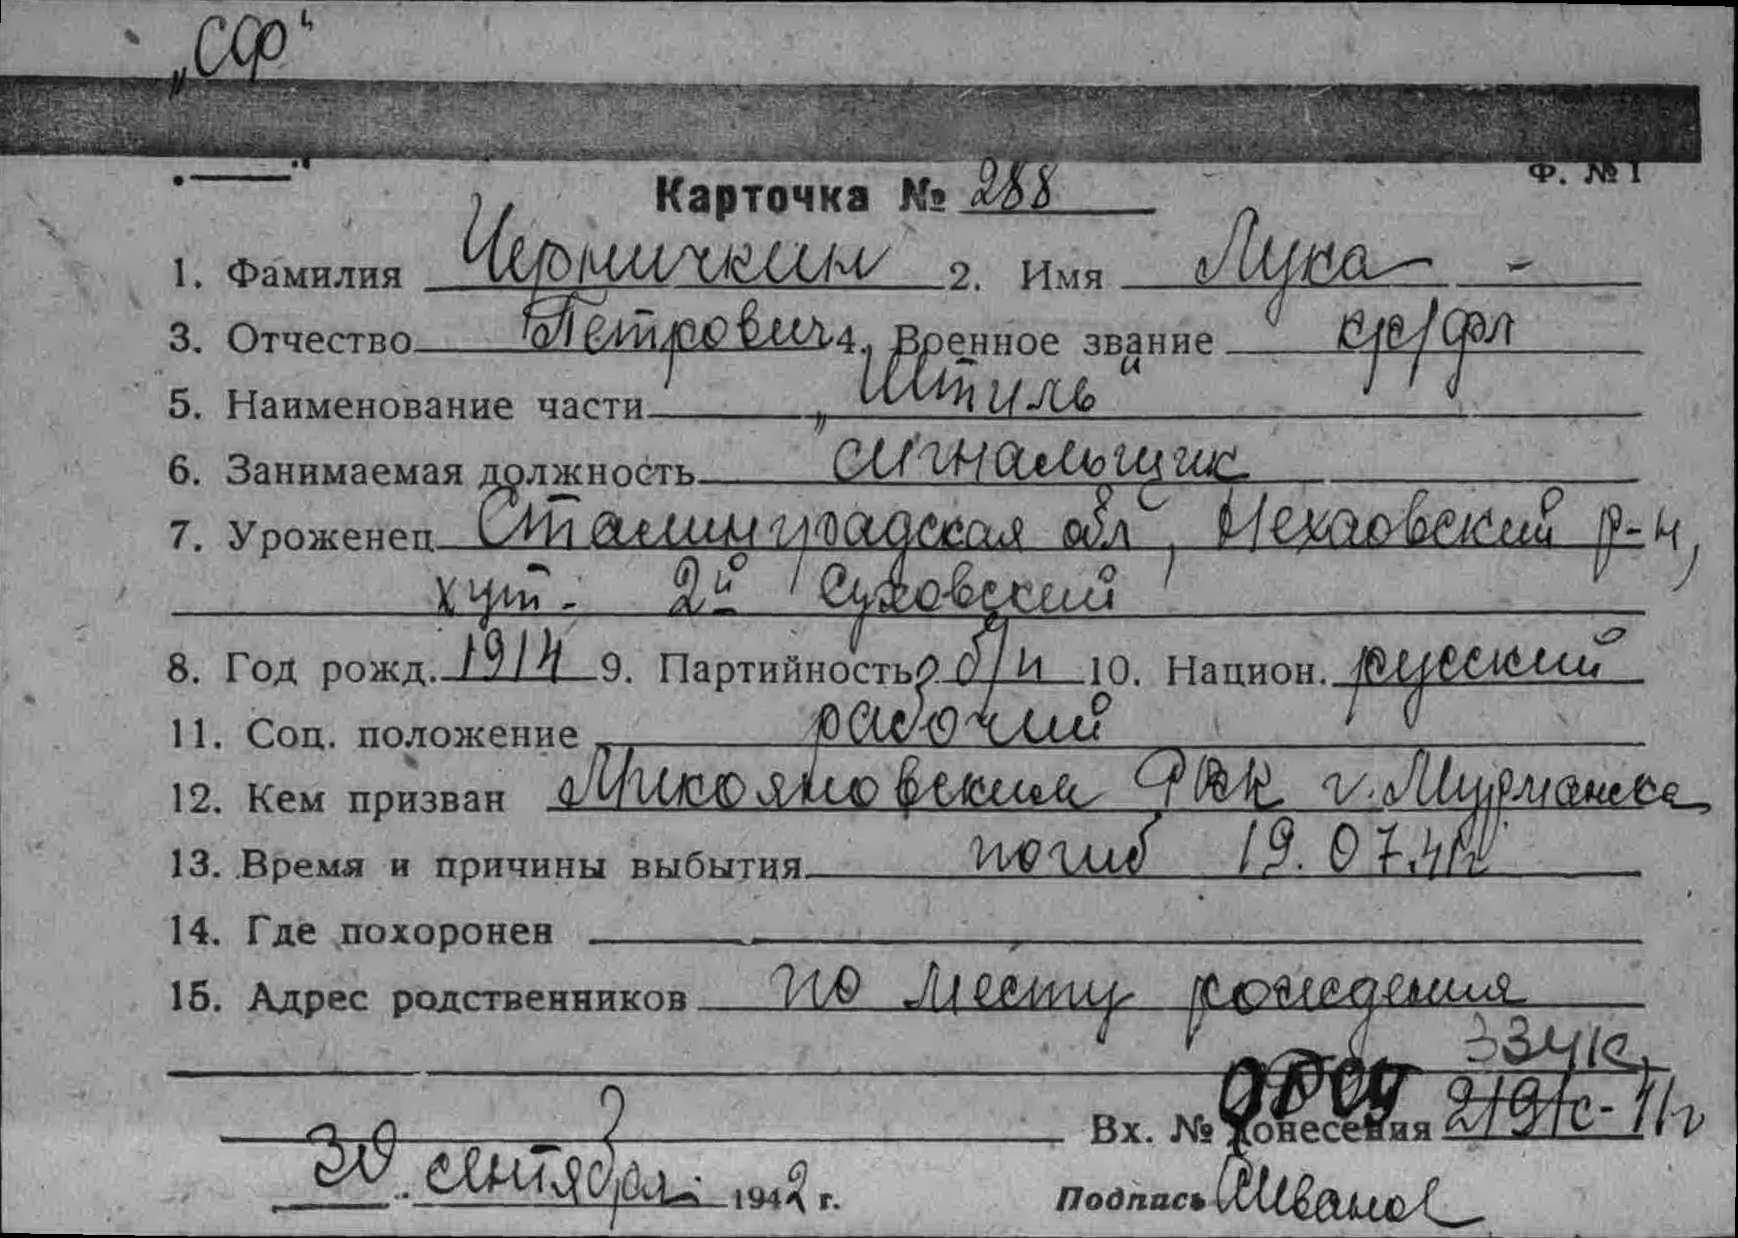 „СФ“
Ф. №1
Карточка № 288
1. Фамилия Черничкин 2. Имя Лука -
3. Отчество Петрович 4. Военное звание кр/фл
5. Наименование части „Штиль“
6. Занимаемая должность сигнальщик
7. Уроженец Сталинградская обл, Нехаовский р-н,
хут. 2й Суховский
8. Год рожд. 1914 9. Партийность б/п 10. Национ. русский
11. Соц. положение рабочий
12. Кем призван Микояновским РВК г. Мурманска
13. Время и причины выбытия погиб 19.07.41г
14. Где похоронен
15. Адрес родственников по месту рождения
Вх. № донесения 219/с-41г
30 сентября 1942 г. Подпись Иванов